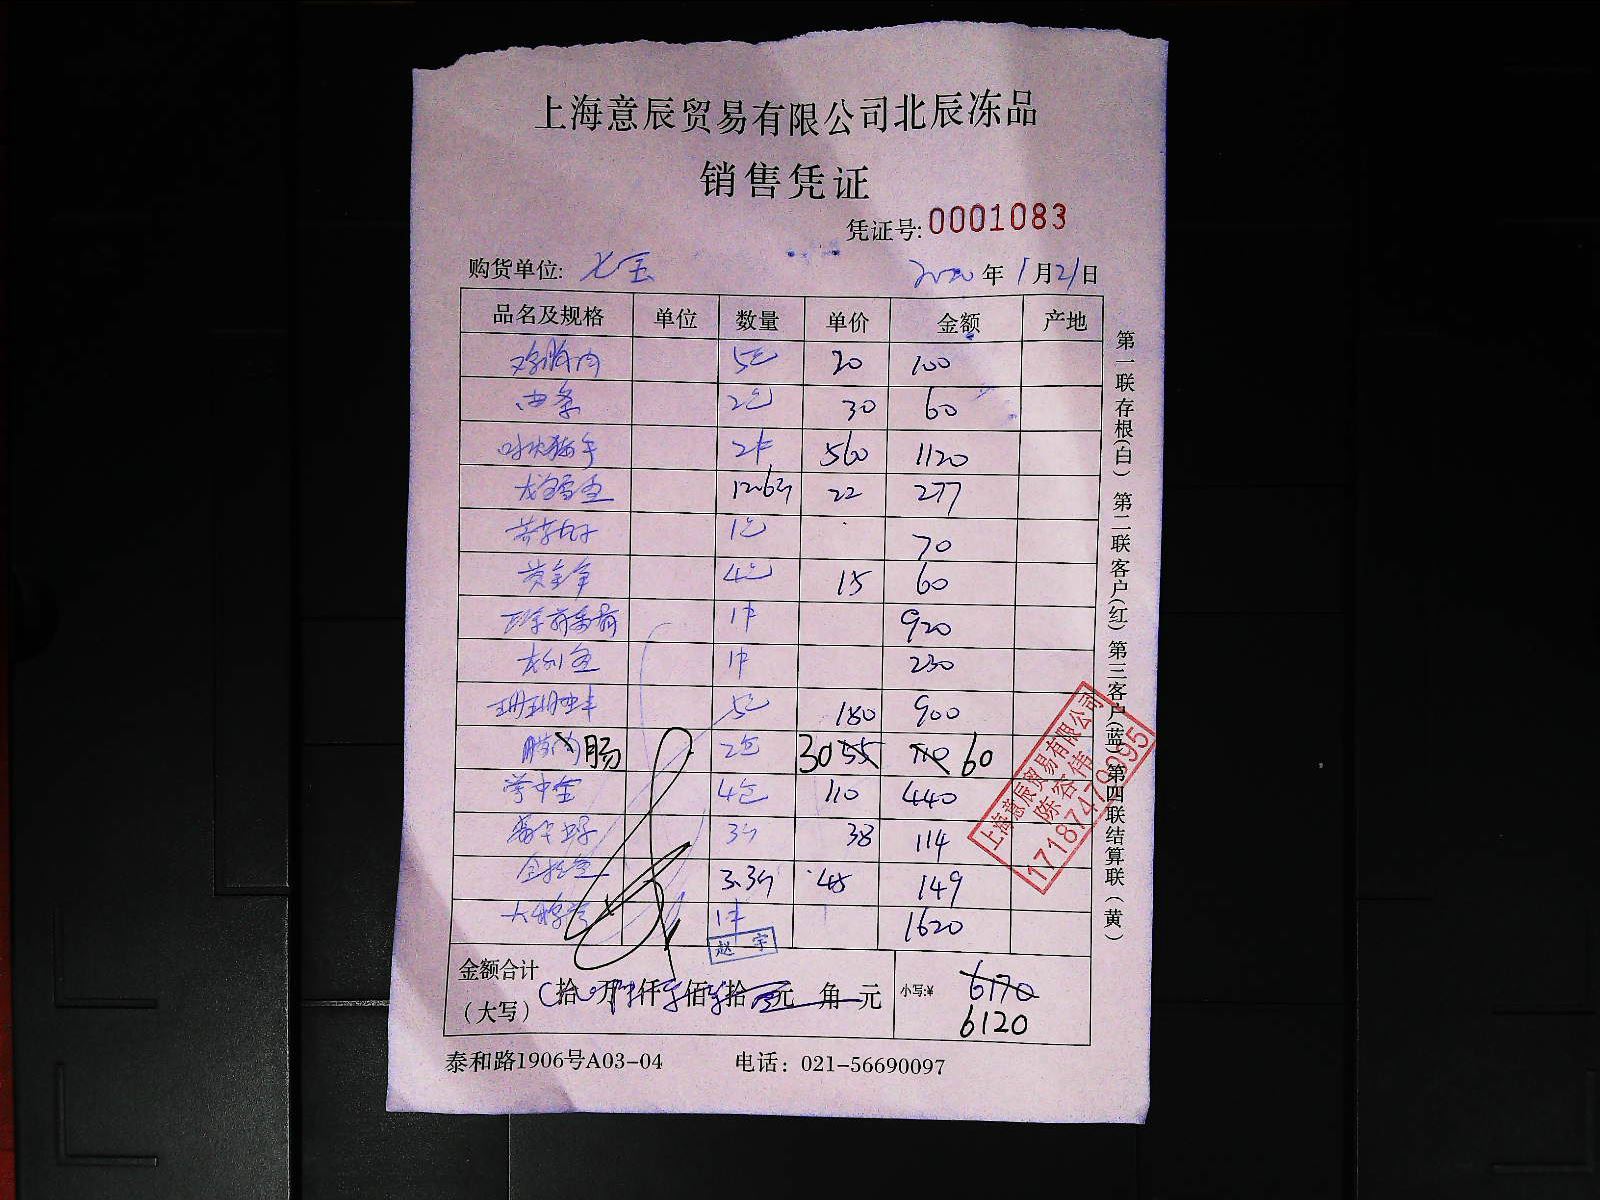 上海意辰贸易有限公司北辰冻品
销售凭证
凭证号:0001083
购货单位: 七宝 2020年1月21日
品名及规格 单位 数量 单价 金额 产地
鸡胸肉 5包 20 100
2包 30 60
2件 560 1120
龙雪鱼 12.6斤 22 277
1包 70
黄金 4包 15 60
1件 920
龙利鱼 1件 230
珊瑚蚌 5包 180 900
腊肉肠 2包 30 55 110 60
4包 110 440
3斤 38 114
3.3斤 45 149
1件 1620
赵宇
金额合计
(大写) 拾 万 仟 佰 拾 元 角 元 小写:¥ 6170
6120
泰和路1906号A03-04 电话: 021-56690097
第一联存根(白) 第二联客户(红) 第三客户(蓝) 第四联结算联(黄)
上海意辰贸易有限公司
陈容伟
17187479995